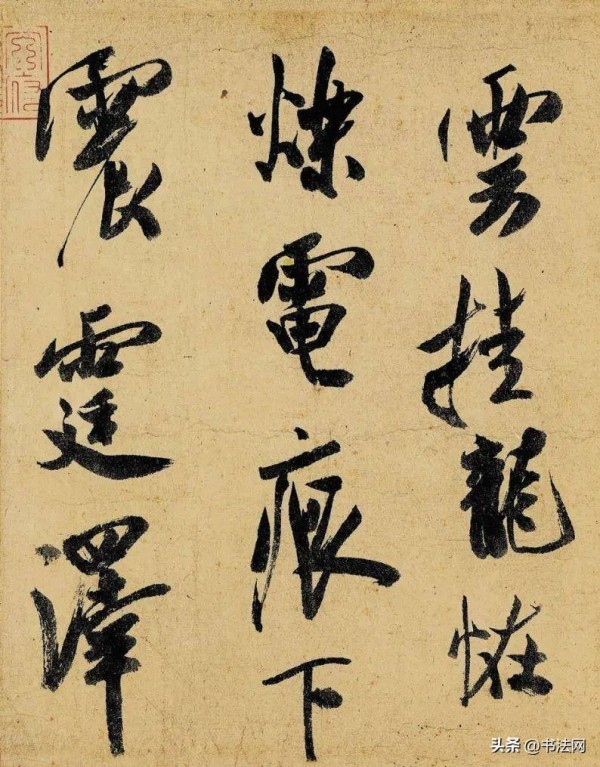 雲挂龍恠
爍電痕下
震霆澤
头条 @书法网